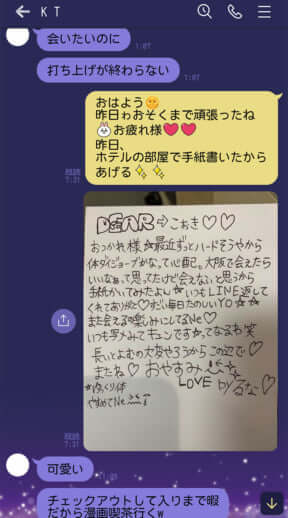 K T
会いたいのに
1:07
打ち上げが終わらない
1:07
おはよう
昨日ゎおそくまで頑張ったね
お疲れ様
昨日、
ホテルの部屋で手紙書いたから
あげる
既読
7:31
DEAR⇨こおき♡♡
おつかれ様☆最近ずっとハードそうやから
体ダイジョーブかなって心配。大阪で会えたら
いいなぁって思ってたけど会えない、と思うから
手紙かいてみたよ いつもLINE返して
くれてありがと♡すごい毎日たのしいYO☆☆
また会える楽しみにしてるNe♡
いつも写メみてキュンですかってなるね 笑
長いとよむの大変やろうからこの辺で♡
またね♡おやすみ
LOVE byるな♡
ゆっくり体
やすめてNe
既読
7:31
可愛い
チェックアウトして入りまで暇
だから漫画喫茶行くw